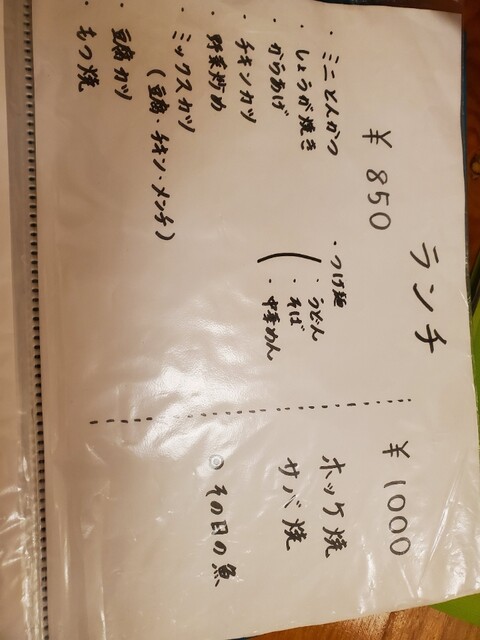 ランチ
¥850
・ミニとんかつ
・しょうが焼き
・からあげ
・チキンカツ
・野菜炒め
・ミックスカツ
（豆腐・チキン・メンチ）
・豆腐カツ
・もつ焼
・つけ麺
・うどん
・そば
・中華めん
¥1000
ホッケ焼
サバ焼
◎その日の魚